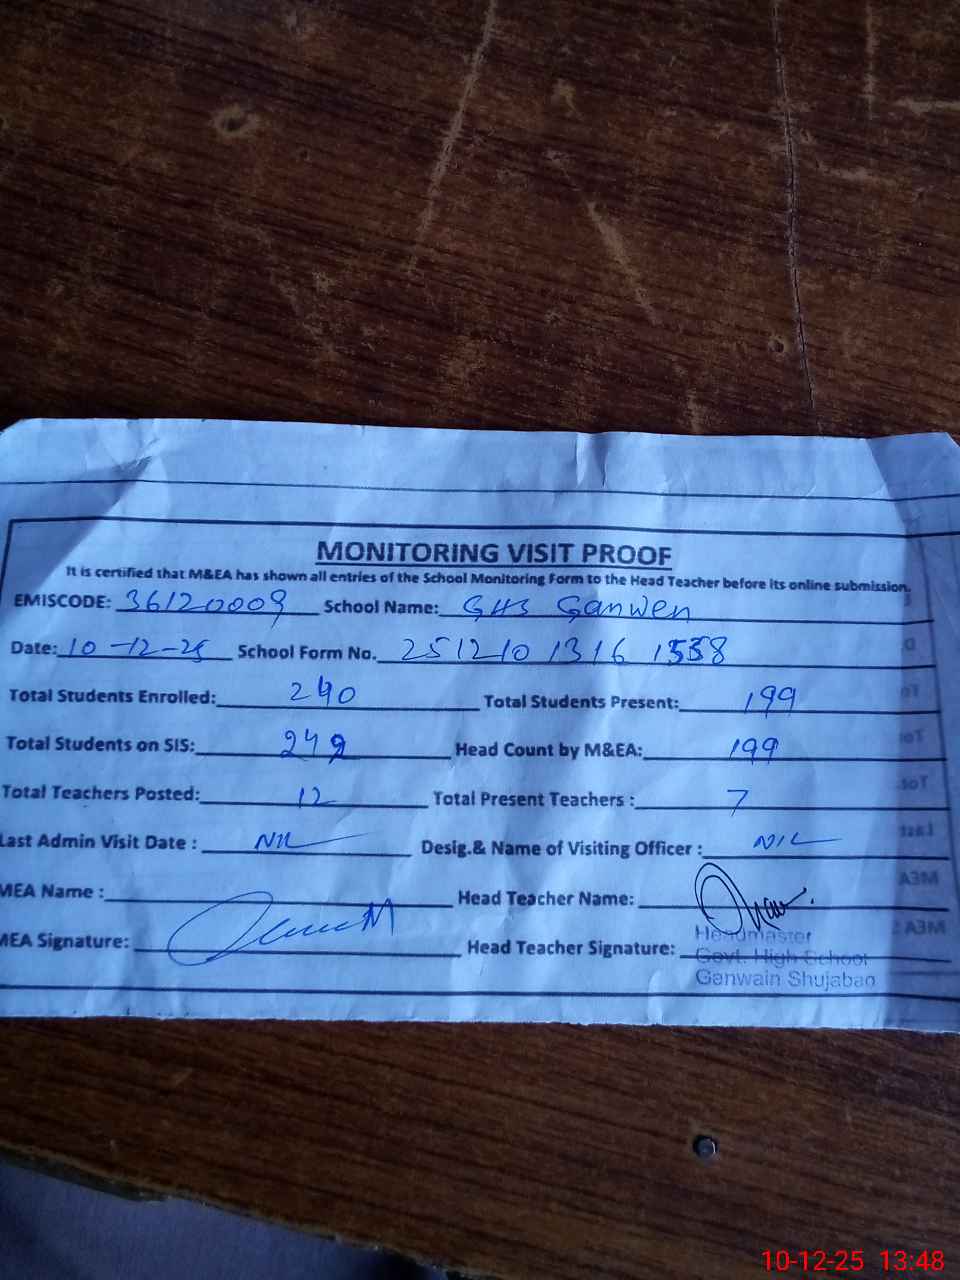 MONITORING VISIT PROOF
It is certified that M&EA has shown all entries of the School Monitoring Form to the Head Teacher before its online submission.
EMISCODE: 36120009 School Name: GHS Ganwen
Date: 10-12-25 School Form No. 251210 1316 1558
Total Students Enrolled: 240 Total Students Present: 199
Total Students on SIS: 249 Head Count by M&EA: 199
Total Teachers Posted: 12 Total Present Teachers : 7
Last Admin Visit Date : NIL Desig.& Name of Visiting Officer : NIL
MEA Name : Head Teacher Name:
MEA Signature: Head Teacher Signature:
Headmaster
Govt. High School
Ganwain Shujabad
10-12-25 13:48